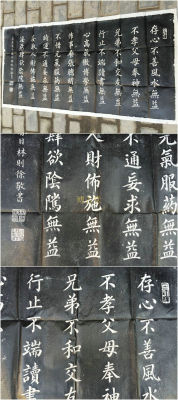 存心不善風水無益
不孝父母奉神無益
兄弟不和交友無益
行止不端讀書無益
心高氣傲博學無益
作事乖張聰明無益
不惜元氣服藥無益
時運不通妄求無益
妄取人財佈施無益
淫惡肆欲陰騭無益
林則徐敬書
元氣服藥無益
不通妄求無益
人財佈施無益
肆欲陰騭無益
林則徐敬書
存心不善風水
不孝父母奉神
兄弟不和交友
行止不端讀書